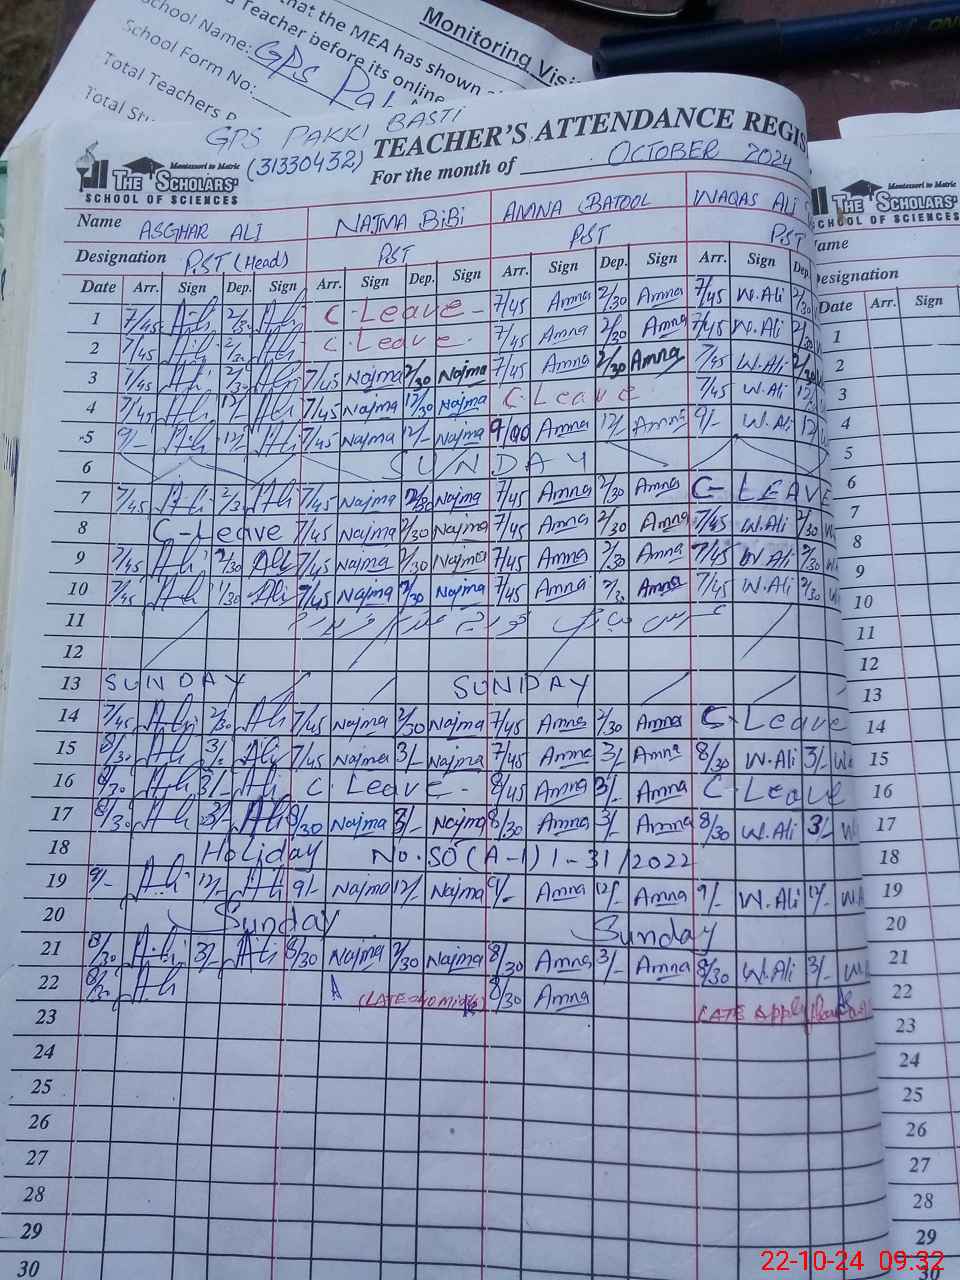 Monitoring Visi
that the MEA has shown
Teacher before its online
School Name: GPS Pa
School Form No:
Total Teachers
Total Stu
GPS PAKKI BASTI
(31330432)
TEACHER'S ATTENDANCE REGIS
For the month of OCTOBER 2024
Montessori to Matric
THE SCHOLARS'
SCHOOL OF SCIENCES
Name ASGHAR ALI NAJMA BIBI AMNA BATOOL WAQAS ALI
Designation PST (Head) PST PST PST
Date Arr. Sign Dep. Sign Arr. Sign Dep. Sign Arr. Sign Dep. Sign Arr. Sign Dep.
1 7/45 Ali 2/30 Ali C. Leave 7/45 Amna 2/30 Amna 7/45 W.Ali 2/30
2 7/45 Ali 2/30 Ali C. Leave 7/45 Amna 2/30 Amna 7/45 W.Ali 2/30
3 7/45 Ali 2/30 Ali 7/45 Najma 2/30 Najma 7/45 Amna 2/30 Amna 7/45 W.Ali 2/30
4 7/45 Ali 12/- Ali 7/45 Najma 12/30 Najma C Leave 7/45 W.Ali 12/
5 9/- Ali 12/- Ali 7/45 Najma 12/- Najma 9/00 Amna 12/- Amna 9/- W.Ali 12/
6 SUNDAY
7 7/45 Ali 2/3 Ali 7/45 Najma 2/30 Najma 7/45 Amna 2/30 Amna C-LEAVE
8 C-Leave 7/45 Najma 2/30 Najma 7/45 Amna 2/30 Amna 7/45 W.Ali 2/30
9 7/45 Ali 2/30 Ali 7/45 Najma 2/30 Najma 7/45 Amna 2/30 Amna 7/45 W.Ali 2/30
10 7/45 Ali 1/30 Ali 7/45 Najma 2/30 Najma 7/45 Amna 2/30 Amna 7/45 W.Ali 2/30
11
12
13 SUNDAY SUNDAY
14 7/45 Ali 2/30 Ali 7/45 Najma 2/30 Najma 7/45 Amna 2/30 Amna C-Leave
15 8/30 Ali 3/- Ali 7/45 Najma 3/- Najma 7/45 Amna 3/- Amna 8/30 W.Ali 3/-
16 8/30 Ali 3/- Ali C. Leave 8/45 Amna 3/- Amna C-Leave
17 8/30 Ali 3/- Ali 8/30 Najma 3/- Najma 8/30 Amna 3/- Amna 8/30 W.Ali 3/-
18 Holiday No. SO (A-1) 1-31/2022
19 9/- Ali 12/- Ali 9/- Najma 12/- Najma 9/- Amna 12/- Amna 9/- W.Ali 12/-
20 Sunday Sunday
21 8/30 Ali 3/- Ali 8/30 Najma 2/30 Najma 8/30 Amna 3/- Amna 8/30 W.Ali 3/-
22 8/30 Ali A (LATE 8/30 Amna LATE Apply
23
24
25
26
27
28
29
30
Montessori to Matric
THE SCHOLARS'
SCHOOL OF SCIENCES
ame
Designation
Date Arr. Sign
1
2
3
4
5
6
7
8
9
10
11
12
13
14
15
16
17
18
19
20
21
22
23
24
25
26
27
28
29
30
22-10-24 09:32